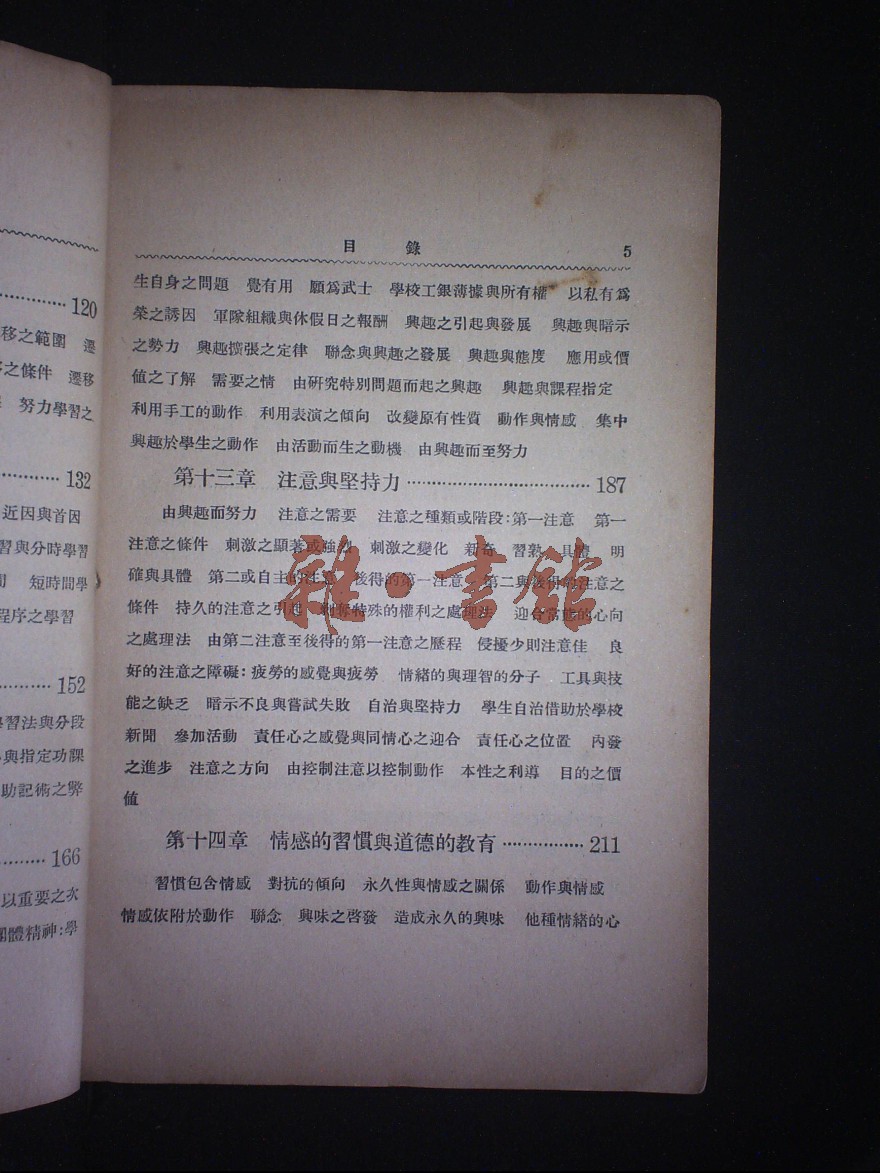 120
移之範圍　遷
之條件　遷移
努力學習之
132
近因與首因
習與分時學習
短時間學
程序之學習
152
學習法與分段
與指定功課
助記術之弊
166
以重要之次
團體精神：學
目　錄　5
生自身之問題　覺有用　願爲武士　學校工銀薄據與所有權　以私有爲
榮之誘因　軍隊組織與休假日之報酬　興趣之引起與發展　興趣與暗示
之勢力　興趣擴張之定律　聯念與興趣之發展　興趣與態度　應用或價
値之了解　需要之情　由研究特別問題而起之興趣　興趣與課程指定
利用手工的動作　利用表演之傾向　改變原有性質　動作與情感　集中
興趣於學生之動作　由活動而生之動機　由興趣而至努力
第十三章　注意與堅持力………………………………187
由興趣而努力　注意之需要　注意之種類或階段：第一注意　第一
注意之條件　刺激之顯著或強烈　刺激之變化　新奇　習熟　具體　明
確與具體　第二或自主的注意　後得的第一注意　第二與後得的注意之
條件　持久的注意之引起　剝奪特殊的權利之處理法　迎合常態的心向
之處理法　由第二注意至後得的第一注意之歷程　侵擾少則注意佳　良
好的注意之障礙：疲勞的感覺與疲勞　情緒的與理智的分子　工具與技
能之缺乏　暗示不良與嘗試失敗　自治與堅持力　學生自治借助於學校
新聞　參加活動　責任心之感覺與同情心之迎合　責任心之位置　內發
之進步　注意之方向　由控制注意以控制動作　本性之利導　目的之價
値
第十四章　情感的習慣與道德的教育……………211
習慣包含情感　對抗的傾向　永久性與情感之關係　動作與情感
情感依附於動作　聯念　興味之啓發　造成永久的興味　他種情緒的心
雜·書館